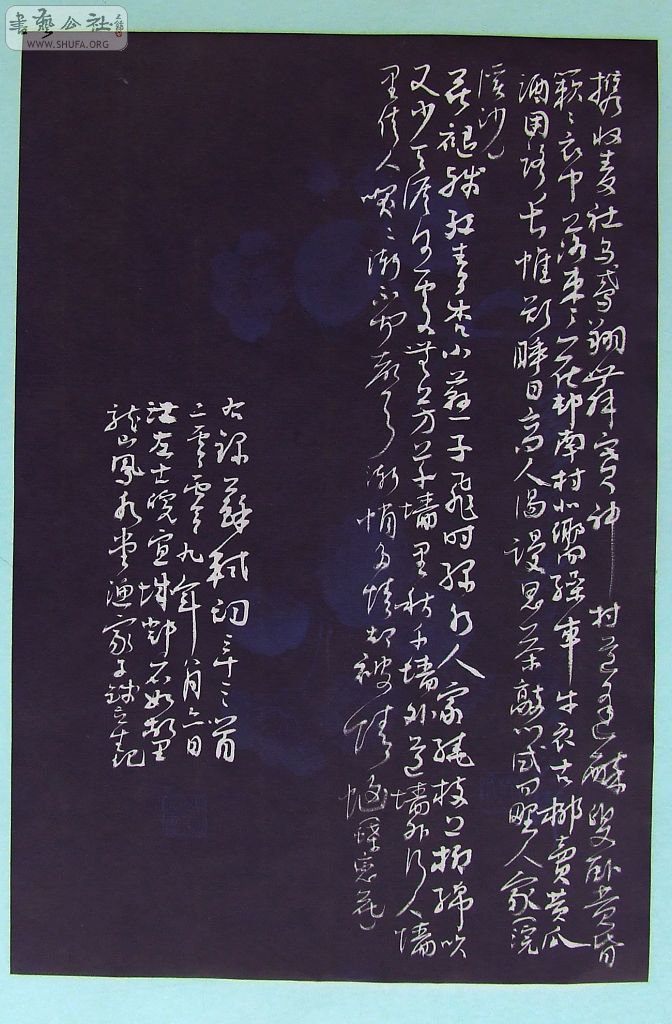 書藝公社
WWW.SHUFA.ORG
收麦社乌鸢翔舞赛神村道逢醉叟卧黄昏
簌〻衣巾落枣〻花村南村北响缲車牛衣古柳賣黄瓜
酒困路长惟欲睡日高人渴谩思茶敲门试问野人家 浣
溪沙
花褪残红青杏小燕子飛时绿水人家绕枝上柳绵吹
又少天涯何處无芳草墙里秋千墙外道墙外行人墙
里佳人笑〻渐不闻声渐悄多情却被情恼 蝶恋花
右録蘇軾詞三十三首
二零零九年月六日
江左士皖宣城
龙山鳳渔家子